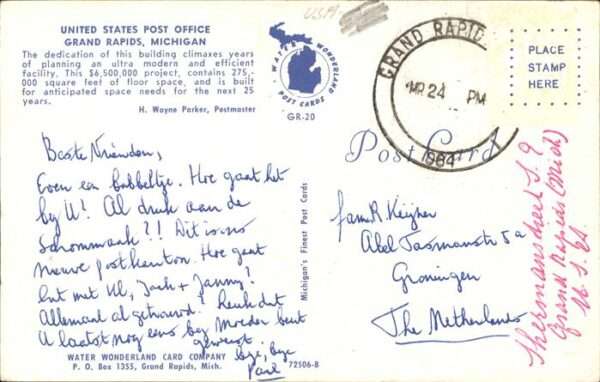 USA
UNITED STATES POST OFFICE
GRAND RAPIDS, MICHIGAN
The dedication of this building climaxes years
of planning an ultra modern and efficient
facility. This $6,500,000 project, contains 275,-
000 square feet of floor space, and is built
for anticipated space needs for the next 25
years.
H. Wayne Parker, Postmaster
WATER WONDERLAND
POST CARDS
GR-20
GRAND RAPIDS
MR 24 PM
1964
PLACE
STAMP
HERE
Post Card
Beste Vrienden,
Even een babbeltje. Hoe gaat het
bij U? Al druk aan de
Schoonmaak?! Dit is ons
nieuwe postkantoor. Hoe gaat
het met Ul, Jack + Janny?
Allemaal al getrouwd? Leuk dat
U laatst nog eens bij Moeder bent
geweest.
bye, bye
Paul
Michigan's Finest Post Cards
fam R. Keijzer
Abel Tasmanstr 5a
Groningen
The Netherlands
Grand Rapids (Mich)
U.S.
WATER WONDERLAND CARD COMPANY
P. O. Box 1355, Grand Rapids, Mich.
72506-B